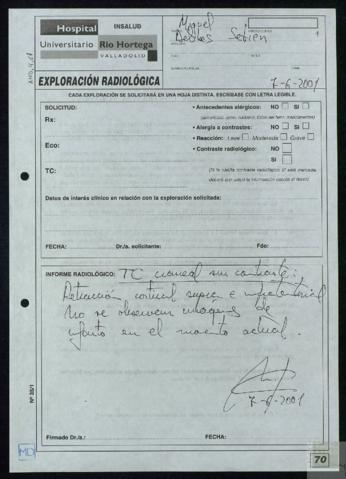 Hospital INSALUD
Universitario Río Hortega
VALLADOLID
Miguel
Delibes Setién
EXPLORACIÓN RADIOLÓGICA
7-6-2001
CADA EXPLORACIÓN SE SOLICITARÁ EN UNA HOJA DISTINTA. ESCRÍBASE CON LETRA LEGIBLE.
SOLICITUD:
• Antecedentes alérgicos: NO SI
Rx:
• Alergia a contrastes: NO SI
• Reacción: Leve Moderada Grave
Eco:
• Contraste radiológico: NO
SI
TC:
Datos de interés clínico en relación con la exploración solicitada:
FECHA: Dr./a. solicitante: Fdo:
INFORME RADIOLÓGICO: TC craneal sin contraste:
Retracción cortical supra e infratentorial
No se observan imágenes de
infarto en el momento actual.
7-6-2001
Nº 35/1
Firmado Dr./a.: FECHA:
MD
70